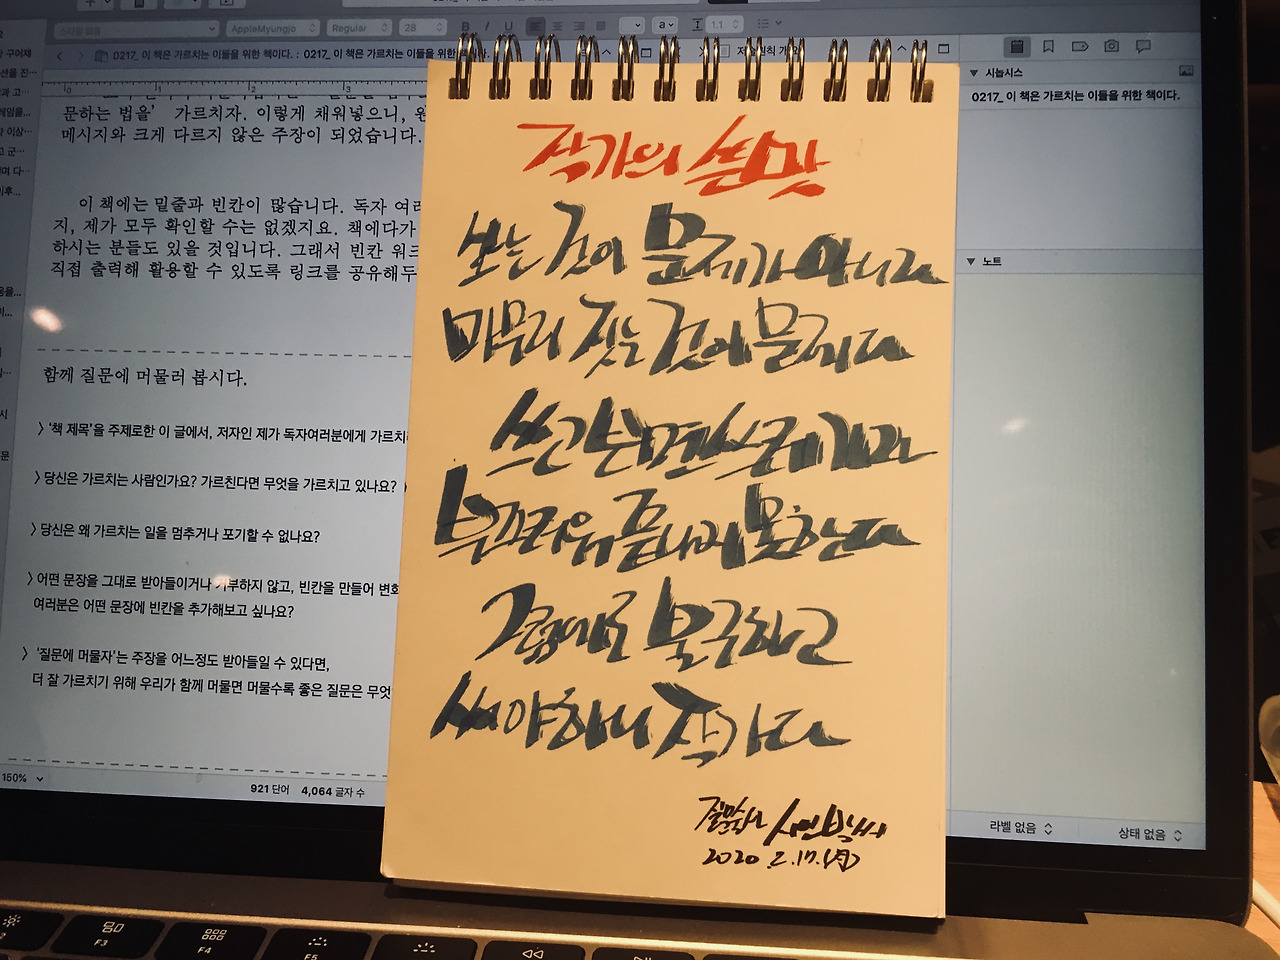 AppleMyungjo Regular 28 B I U 1.1
0217_ 이 책은 가르치는 이들을 위한 책이다. : 0217_ 이 책은 가르치는 이들을 위한 책이다.
문하는 법을’ 가르치자. 이렇게 채워넣으니,
메시지와 크게 다르지 않은 주장이 되었습니다.
이 책에는 밑줄과 빈칸이 많습니다. 독자 여러
지, 제가 모두 확인할 수는 없겠지요. 책에다가
하시는 분들도 있을 것입니다. 그래서 빈칸 워크
직접 출력해 활용할 수 있도록 링크를 공유해두
함께 질문에 머물러 봅시다.
〉‘책 제목’을 주제로한 이 글에서, 저자인 제가 독자여러분에게 가르치
〉당신은 가르치는 사람인가요? 가르친다면 무엇을 가르치고 있나요?
〉당신은 왜 가르치는 일을 멈추거나 포기할 수 없나요?
〉어떤 문장을 그대로 받아들이거나 거부하지 않고, 빈칸을 만들어 변화
여러분은 어떤 문장에 빈칸을 추가해보고 싶나요?
〉‘질문에 머물자’는 주장을 어느정도 받아들일 수 있다면,
더 잘 가르치기 위해 우리가 함께 머물면 머물수록 좋은 질문은 무엇
150%
921 단어 4,064 글자 수
작가의 쓴맛
보는 것이 문제가 아니라
마무리 짓는 것이 문제다
쓰레기라
부끄러워 끝내지 못한다
그럼에도 불구하고
써야하니 작가다
질문술사 시인박씨
2020. 2. 17. (月)
시놉시스
0217_ 이 책은 가르치는 이들을 위한 책이다.
노트
라벨 없음
상태 없음
F3
F4
F5